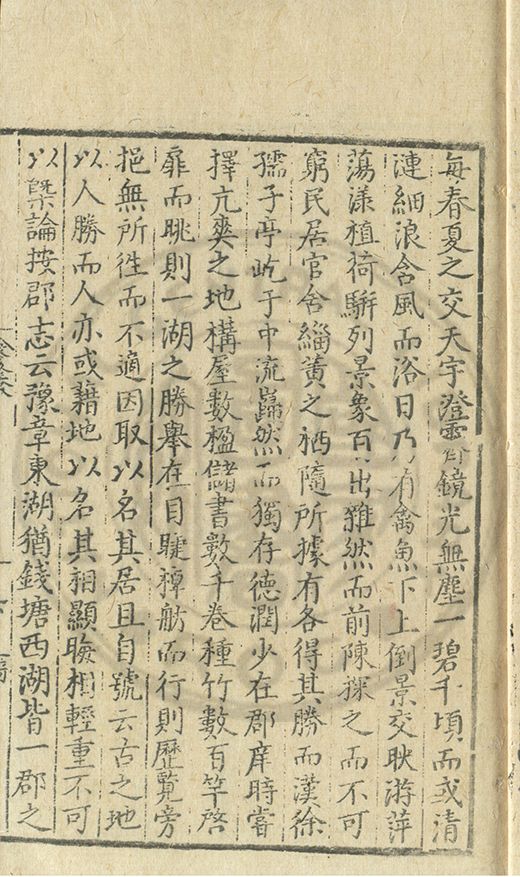 每春夏之交天宇澄霽鏡光無塵一碧千頃而或清
漣細浪含風而浴日乃有禽魚下上倒景交映游萍
蕩漾植荷駢列景象百出雜然而前陳探之而不可
窮民居官舍緇黃之栖隨所據有各得其勝而漢徐
孺子亭屹于中流巋然而獨存德潤少在郡庠時嘗
擇亢爽之地構屋數楹儲書數千卷種竹數百竿啓
扉而眺則一湖之勝舉在目睫櫂舫而行則歷覽旁
挹無所徃而不適因取以名其居且自號云古之地
以人勝而人亦或藉地以名其相顯晦相輕重不可
以槩論按郡志云豫章東湖猶錢塘西湖皆一郡之